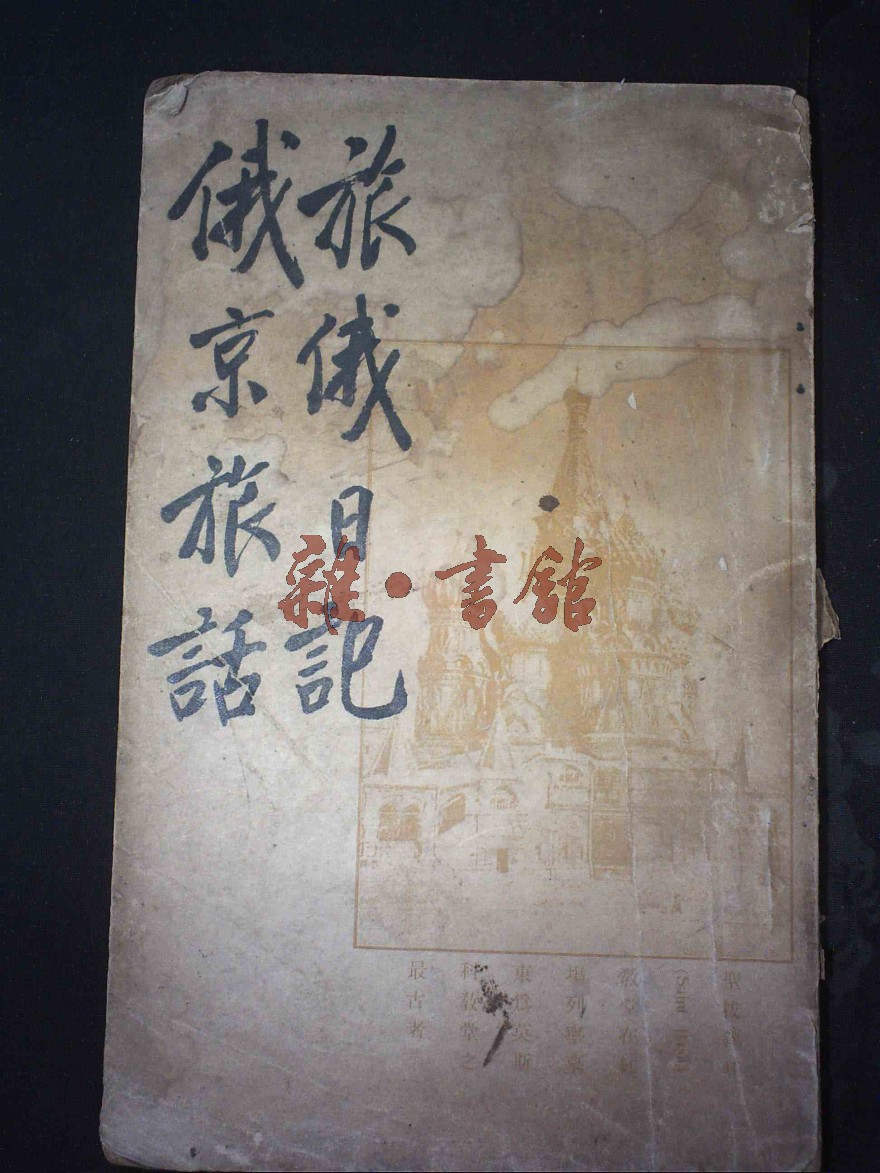 旅俄日記
俄京旅話
雜·書館
聖
(Saint
教堂在紅
場列寧墓
東爲莫斯
科教堂之
最古者